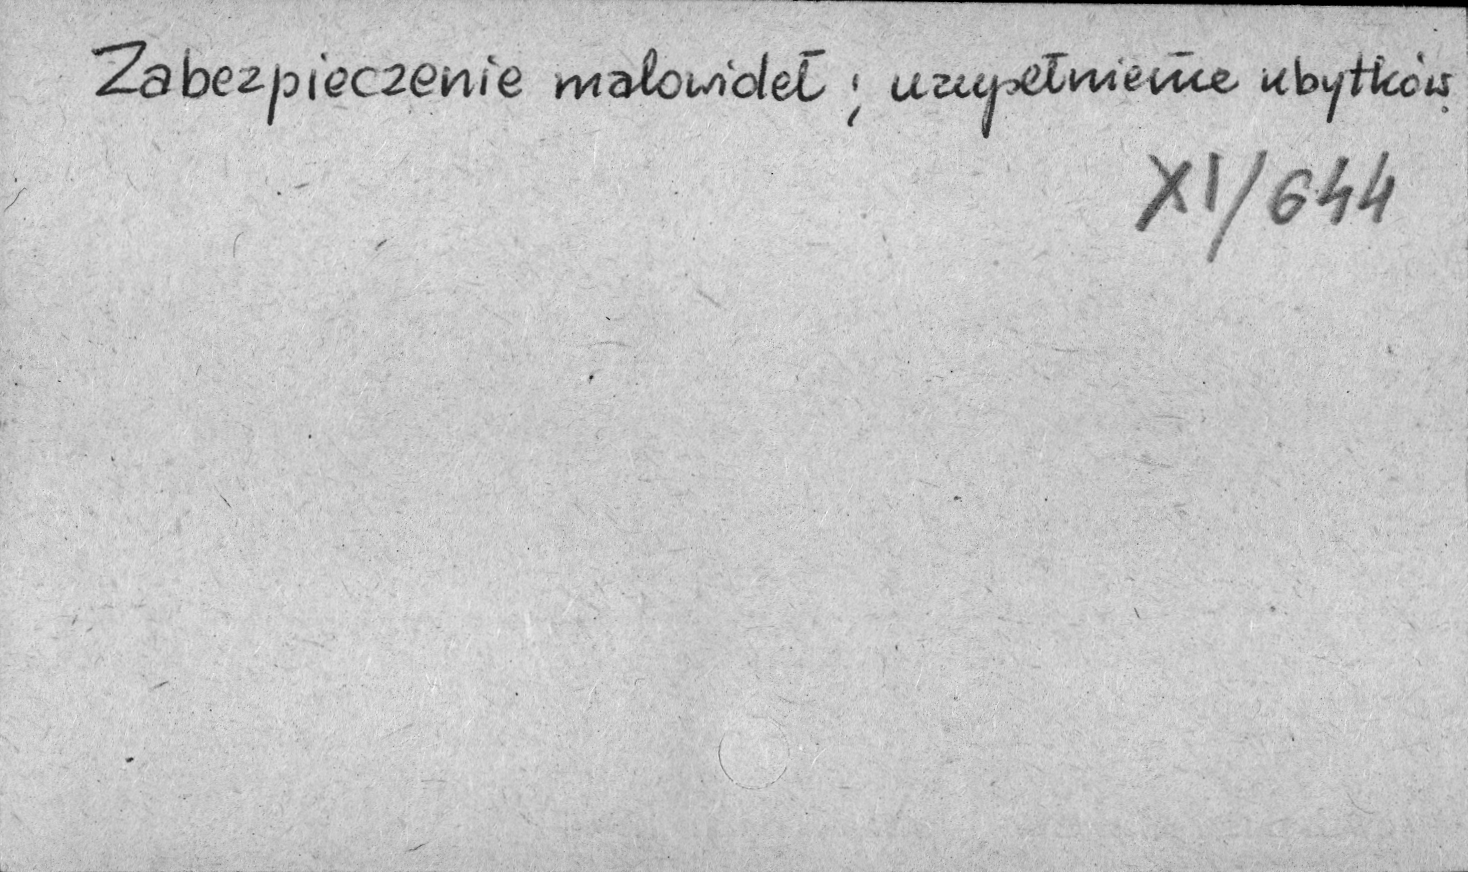 Zabezpieczenie malowideł ; uzupełnienie ubytków.
XI/644